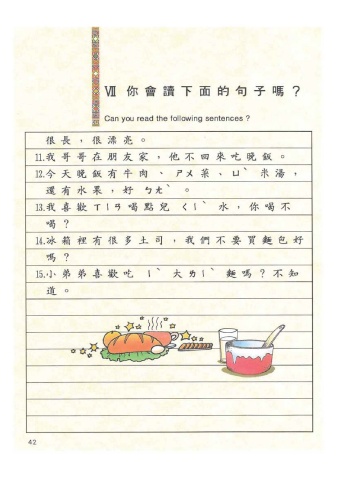 Ⅶ 你會讀下面的句子嗎？
Can you read the following sentences ?
很長，很漂亮。
11.我哥哥在朋友家，他不回來吃晚飯。
12.今天晚飯有牛肉、ㄕㄨ菜、ㄩˋ米湯，
還有水果，好ㄅㄤˋ。
13.我喜歡ㄒㄧㄢ喝點兒ㄑㄧˋ水，你喝不
喝？
14.冰箱裡有很多土司，我們不要買麵包好
嗎？
15.小弟弟喜歡吃ㄧˋ大ㄌㄧˋ麵嗎？不知
道。
42